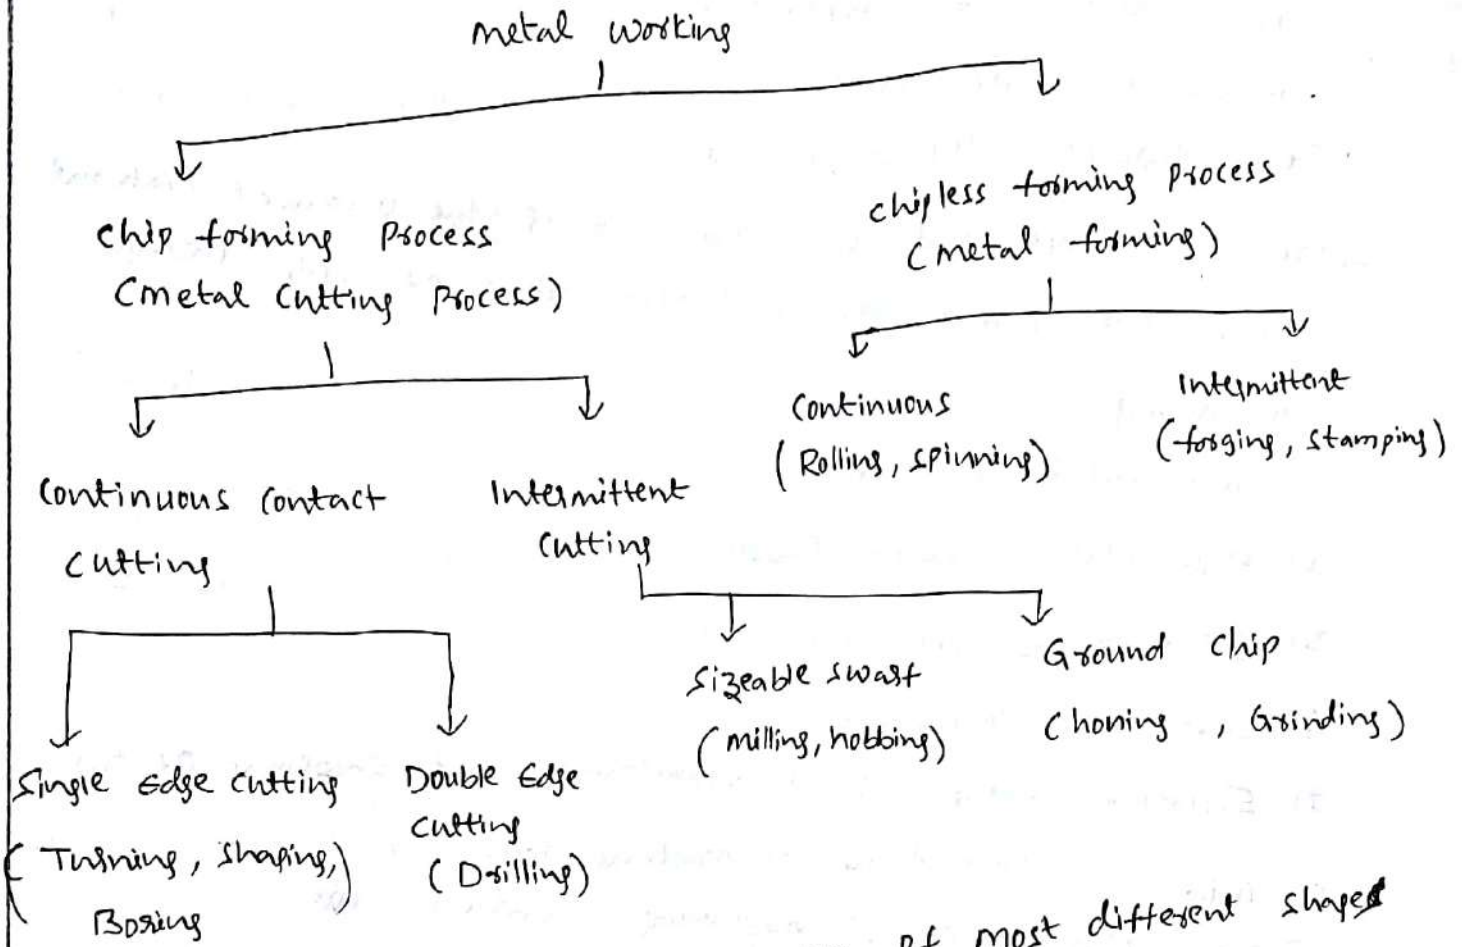 metal working
chip forming process
(metal cutting process)
chipless forming process
(metal forming)
continuous contact
cutting
Intermittent
cutting
continuous
(Rolling, spinning)
Intermittent
(forging, stamping)
Single Edge cutting
(Turning, shaping,)
Boring
Double Edge
cutting
(Drilling)
Sizeable swarf
(milling, hobbing)
Ground chip
(honing , Grinding)
of most different shapes